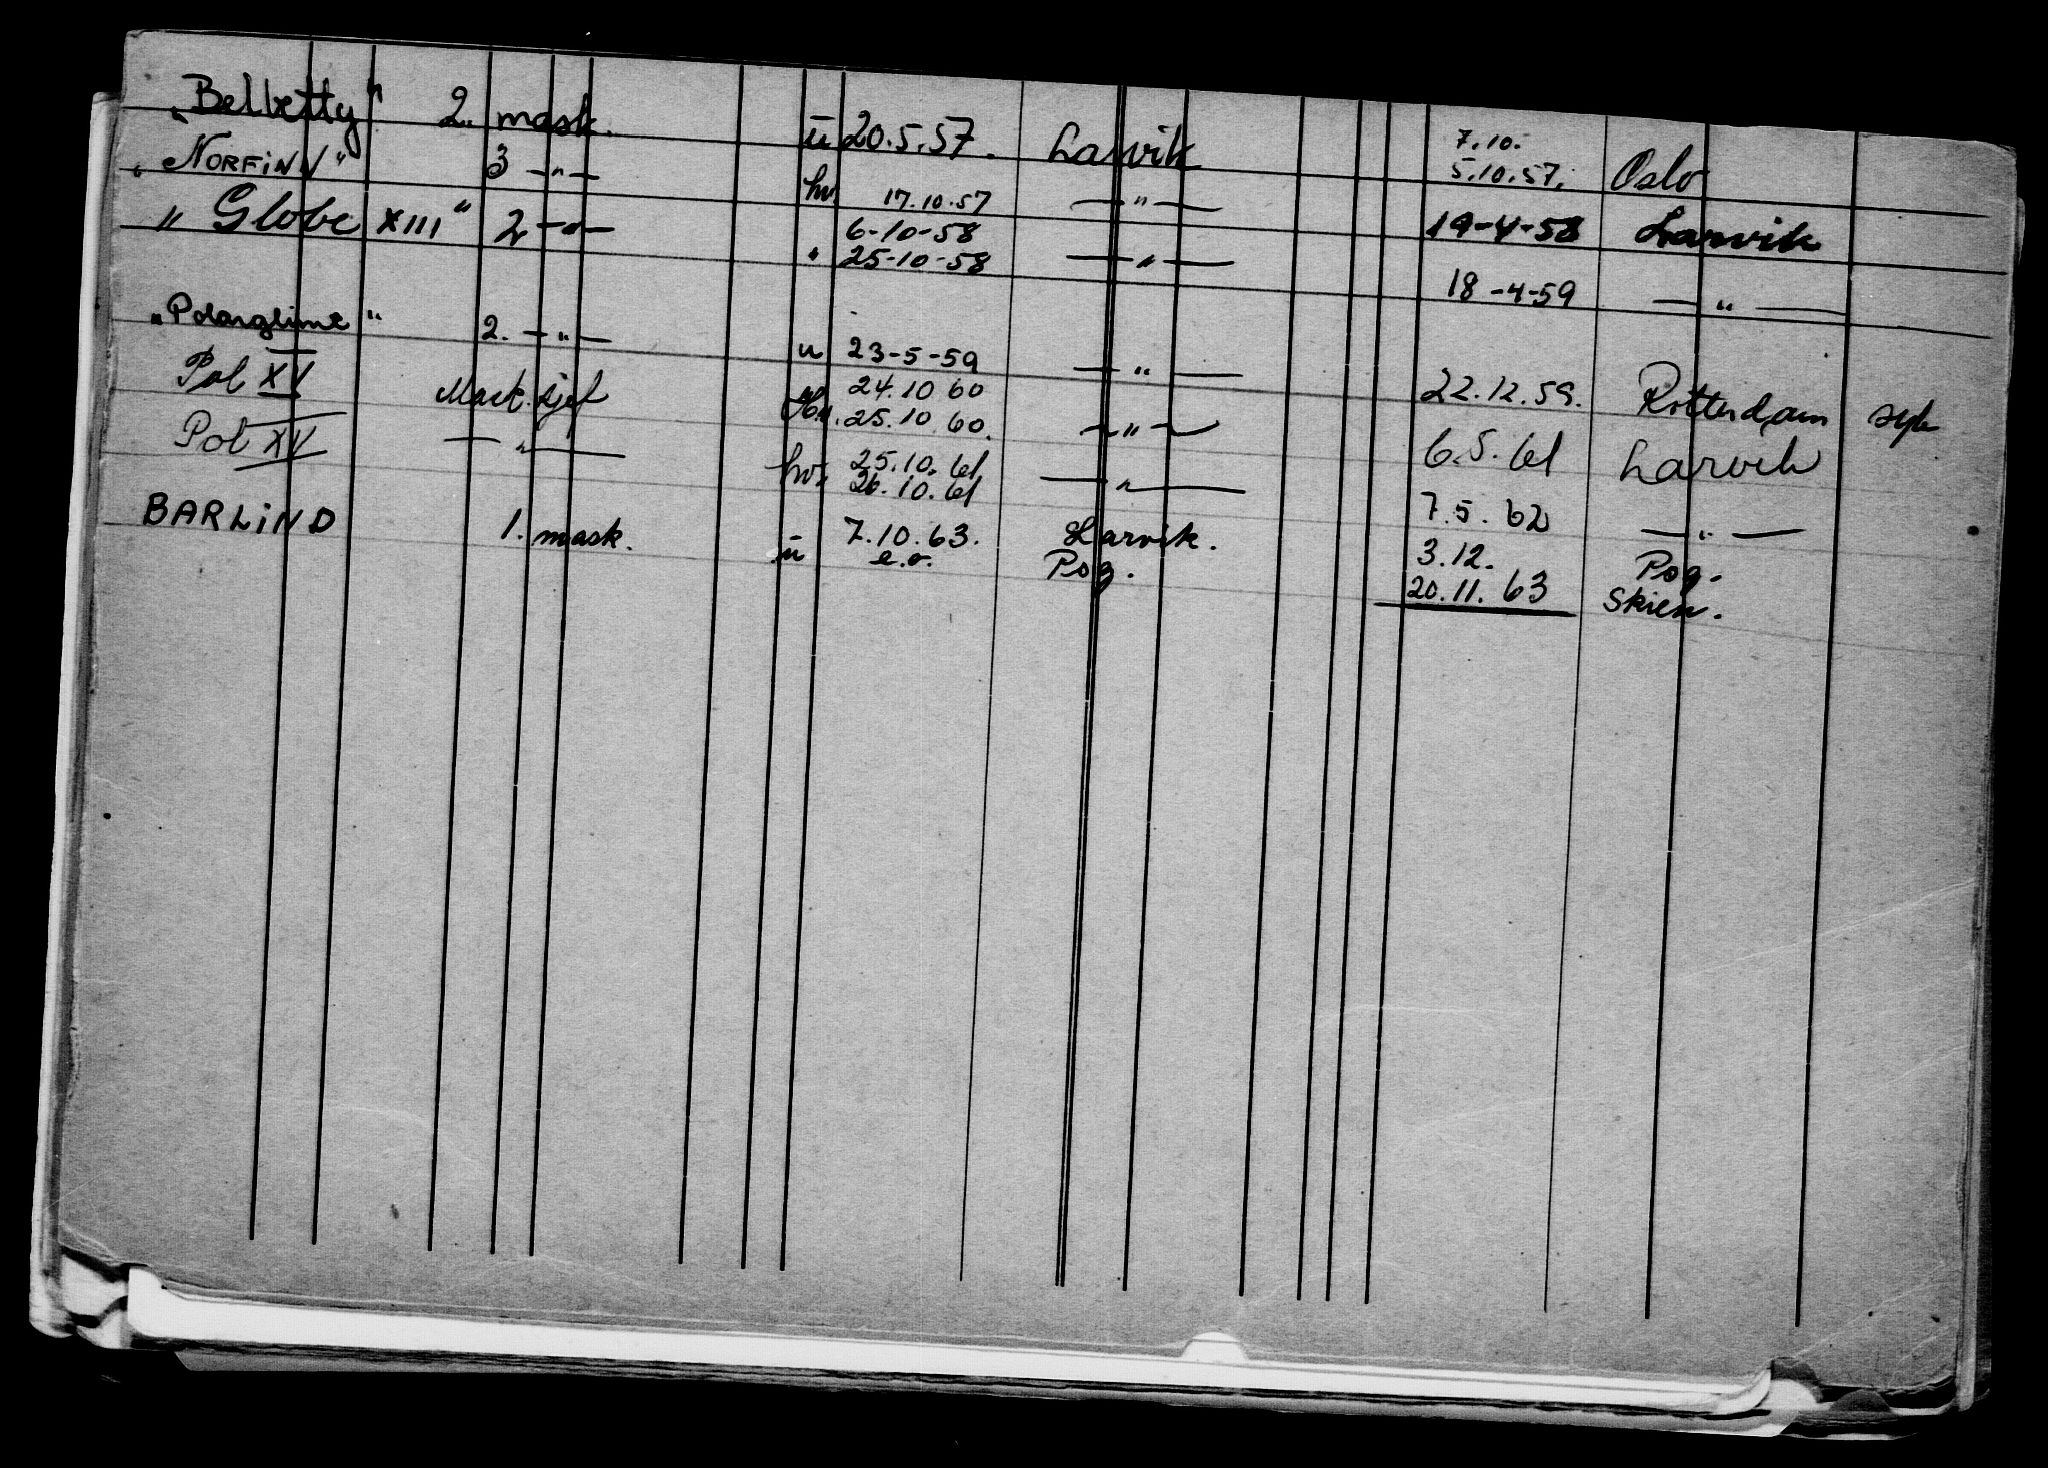 „Belbetty" 2. mask. ū 20.5.57. Larvik 7.10. 5.10.57. Oslo
„NORFINN" 3 —"— hv. 17.10.57 —"— 19-4-58 Larvik
„Globe XIII" 2 —"— " 6-10-58 25-10-58 —"— 18-4-59 —"—
„Polarglimt" 2. —"— u 23-5-59 —"— 22.12.59. Rotterdam syk
Pol XV Mask.sjef Hv. 24.10 60 25.10.60. —"— 6.5.61 Larvik
Pol XV —"— hv. 25.10.61 26.10.61 —"— 7.5.62 —"—
BARLIND 1. mask. ū 7.10.63. e.o. Larvik. Pog. 3.12. 20.11.63 Pog. Skien.